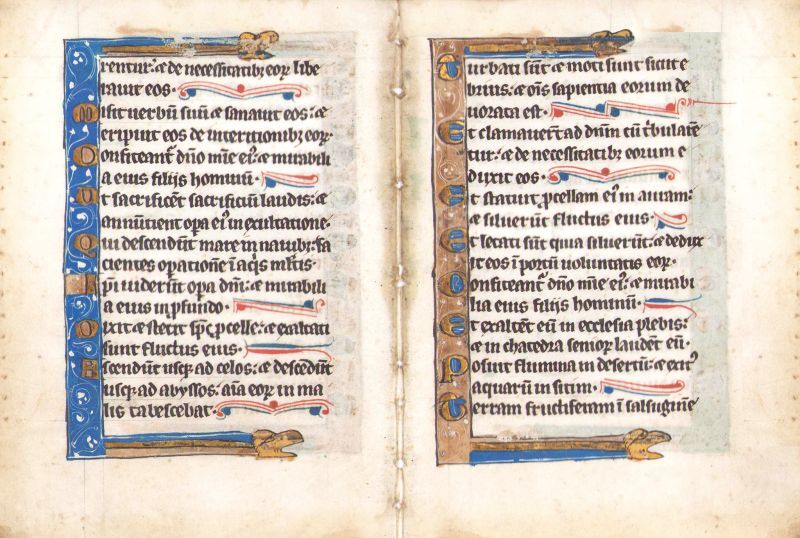 rentur: ⁊ de necessitatibꝫ eoꝝ libe
rauit eos.
Misit uerbū suū ⁊ sanauit eos: ⁊
eripuit eos de interitionibꝫ eoꝝ.
Confiteantᷣ dn̄o mīe eiꝰ: ⁊ mirabili
a eius filijs hominū.
Et sacrificēt sacrificiū laudis: ⁊
annūtient oꝑa eiꝰ in exultatione.
Qui descendūt mare in nauibꝫ: fa
cientes oꝑationē ī aq̄s ml̄tis.
Ip̄i uiderūt oꝑa dn̄i: ⁊ mirabili
a eius in ꝓfundo.
Dixit ⁊ stetit sp̄c ꝓcelle: ⁊ exaltati
sunt fluctus eius.
Ascendūt usqꝫ ad celos: ⁊ descendūt
usqꝫ ad abyssos: aīa eoꝝ in ma
lis tabescebat.
Turbati sūt ⁊ moti sunt sicut e
brius: ⁊ om̄s sapientia eorum de
uorata est.
Et clamauerūt ad dn̄m cū tͥbularē
tur: ⁊ de necessitatibꝫ eorum e
duxit eos.
Et statuit ꝓcellam eiꝰ in auram:
⁊ siluerūt fluctus eius.
Et letati sūt quia siluerūt: ⁊ dedux
it eos ī portū uoluntatis eoꝝ.
Confiteantᷣ dn̄o mīe eiꝰ: ⁊ mirabi
lia eius filijs hominū.
Et exaltēt eū in ecclesia plebis:
⁊ in chatedra senioꝝ laudēt eū.
Posuit flumina in desertū: ⁊ exitꝰ
aquarū in sitim.
Terram fructiferam ī salsuginē